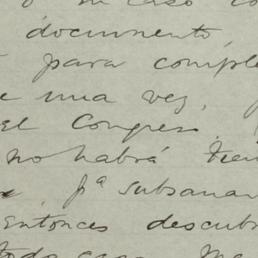 o su caso co
documento
para comple
e una vez,
El Congreso
no habrá tiem
pª subsanar
Entonces descubr
todo caso. Me